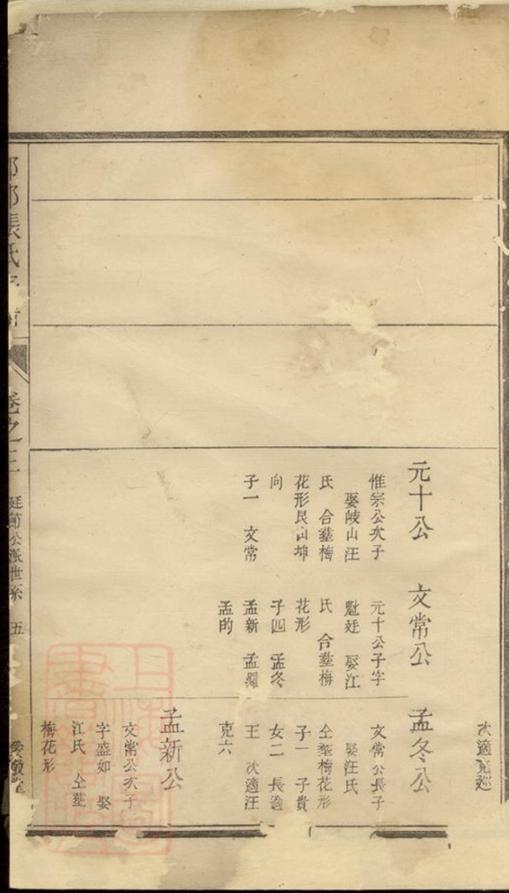 次適
元十公
惟宗公次子
娶陵山汪
氏 合塟梅
花形艮山坤
向
子一 文常
文常公
元十公子字
魁廷 娶江
氏 合塟梅
花形
子四 孟冬
孟新
孟的
孟冬公
文常公長子
娶汪氏
仝塟梅花形
子一 子貴
女二 長適
王 次適汪
克六
孟新公
文常公次子
字盛如 娶
江氏 仝塟
梅花形
張氏
卷之三
廷節公派世系 五